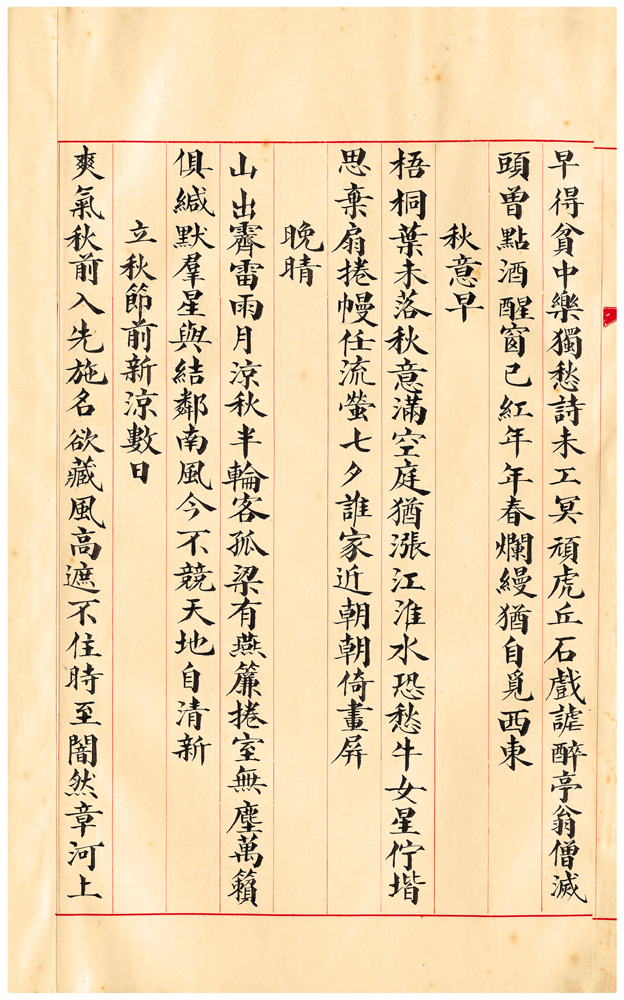 早得貧中樂獨愁詩未工冥頑虎丘石戲謔醉亭翁僧滅
頭曾點酒醒窗已紅年年春爛縵猶自覓西東
秋意早
梧桐葉未落秋意滿空庭猶漲江淮水恐愁牛女星佇堦
思棄扇捲幔任流螢七夕誰家近朝朝倚畫屏
晚晴
山出霽雷雨月涼秋半輪客孤梁有燕簾捲室無塵萬籟
俱緘默羣星與結鄰南風今不競天地自清新
立秋節前新涼數日
爽氣秋前入先施名欲藏風高遮不住時至闇然章河上